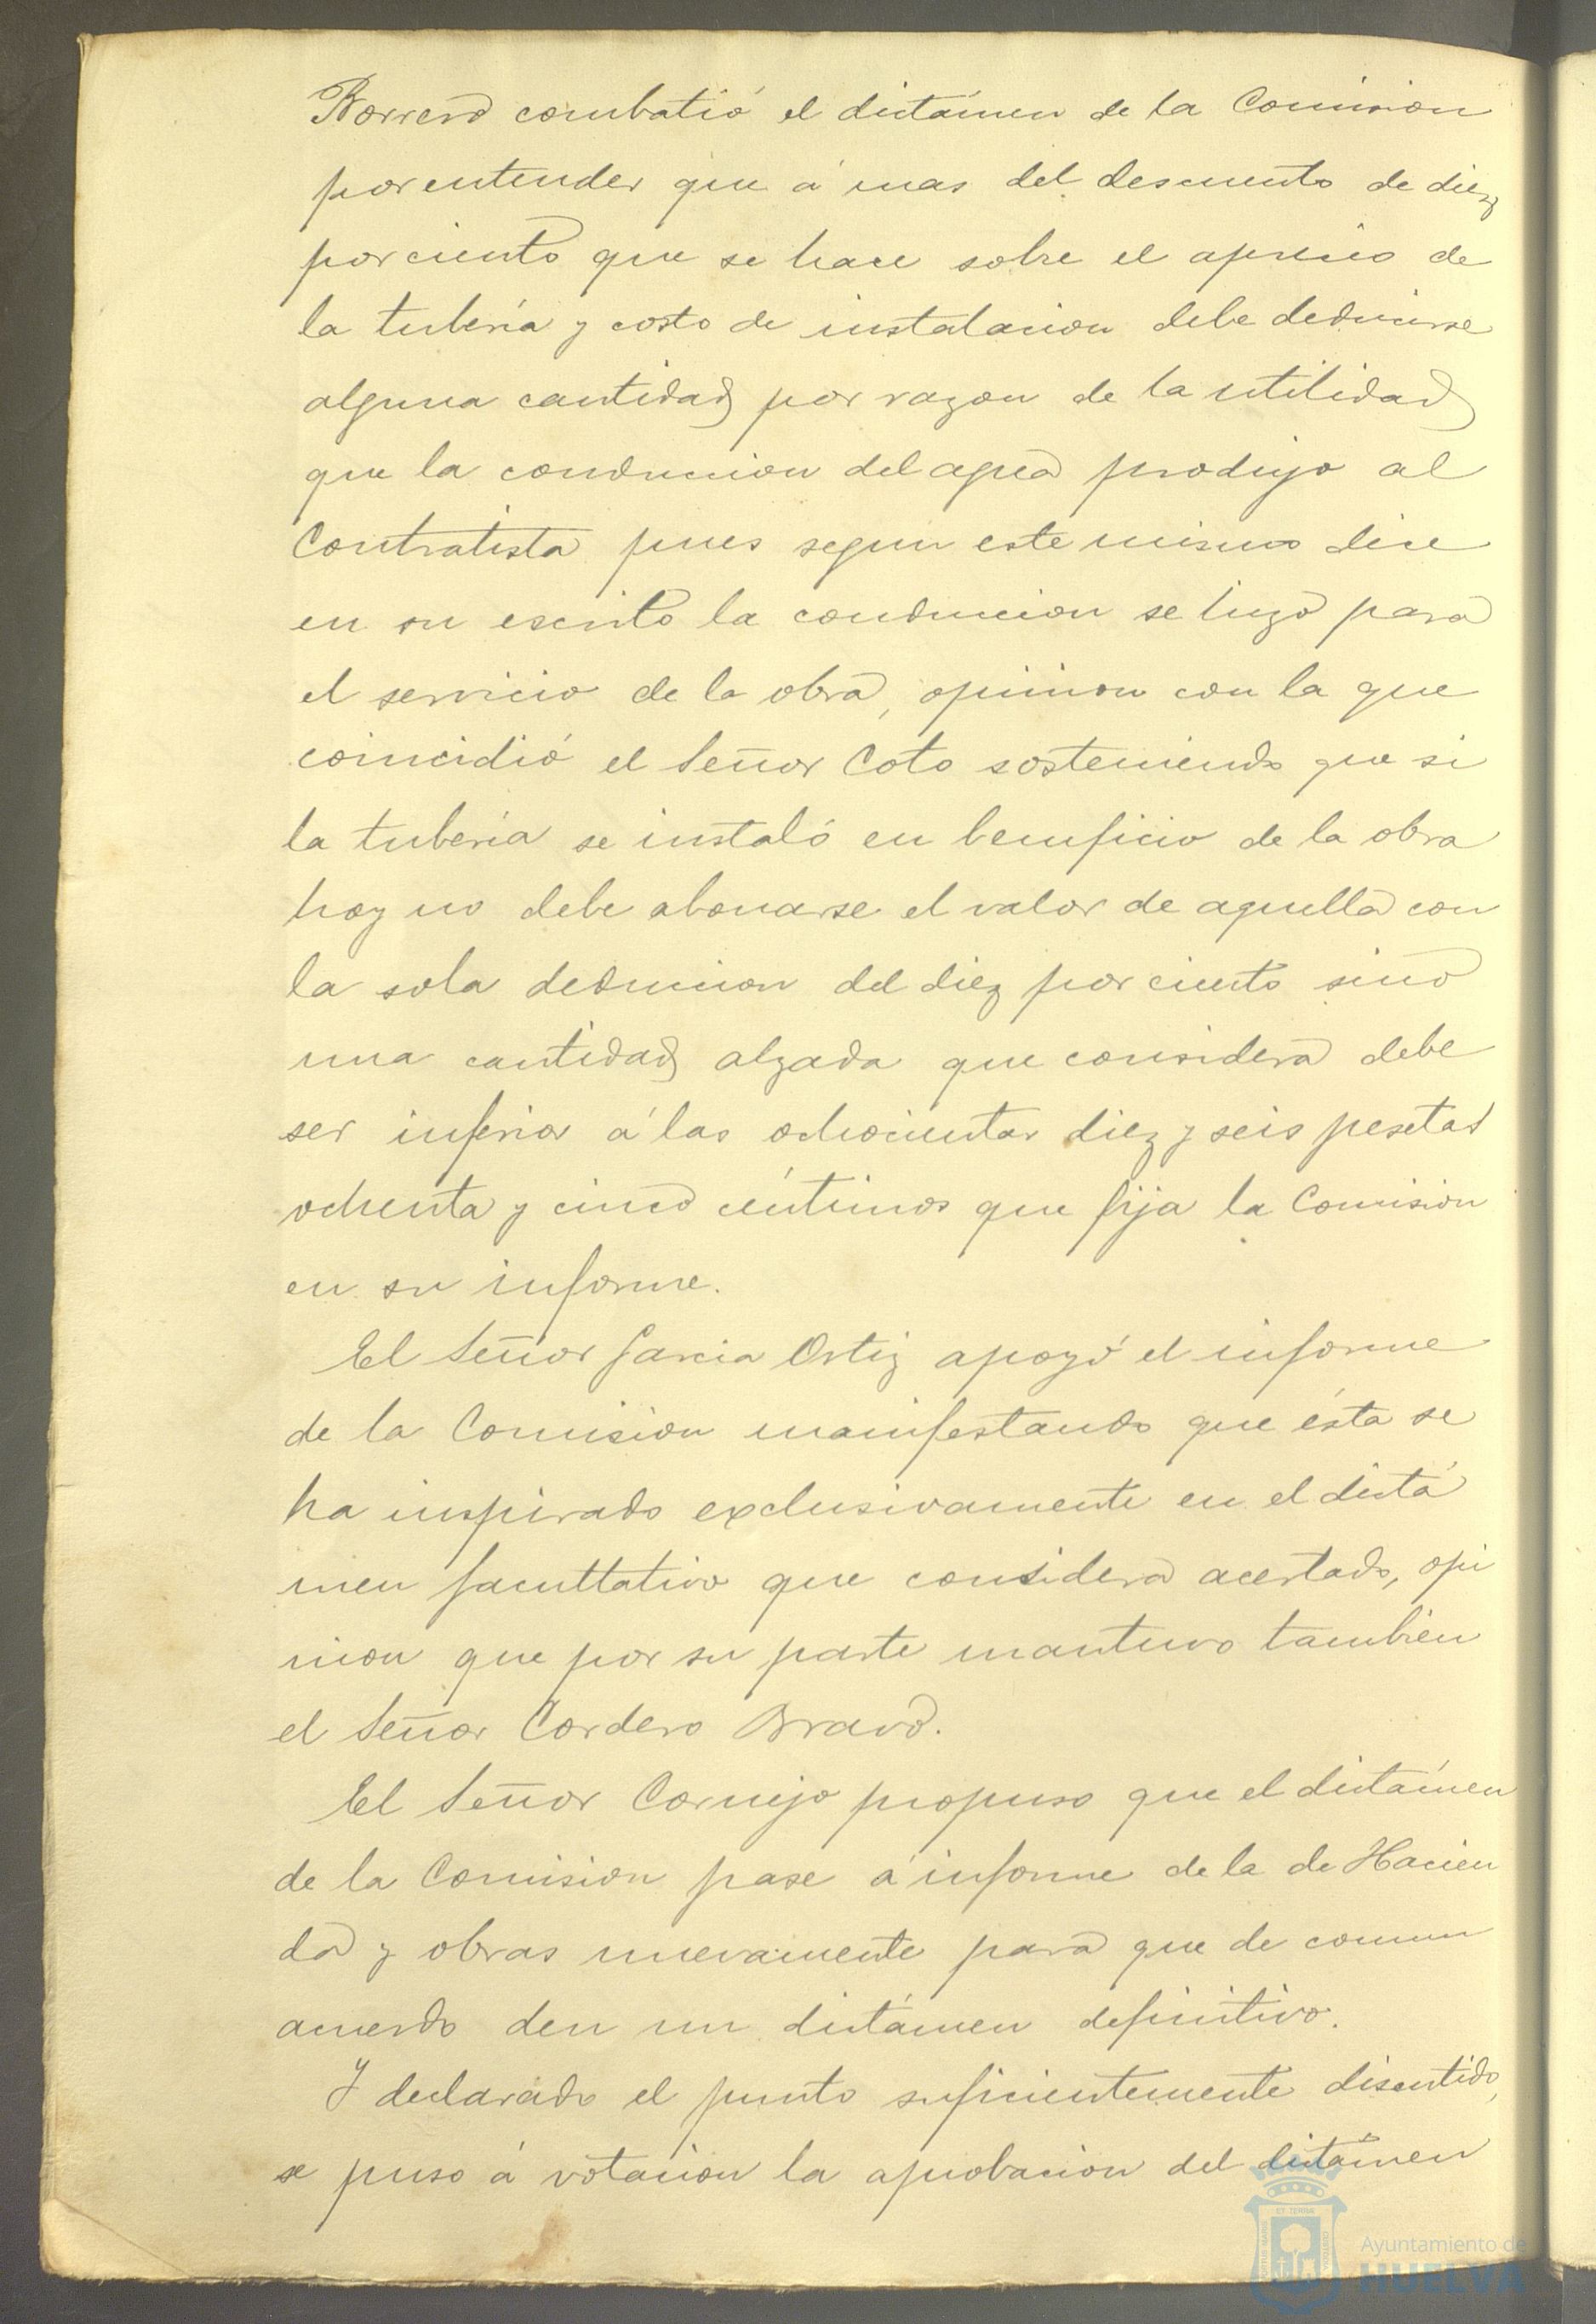 Borrero combatió el dictámen de la Comision
por entender que á mas del descuento de diez
por ciento que se hace sobre el aprecio de
la tubería y costo de instalacion debe deducirse
alguna cantidad por razon de la utilidad
que la conduccion del agua produjo al
Contratista pues segun este mismo dice
en su escrito la conduccion se hizo para
el servicio de la obra, opinion con la que
coincidió el Señor Coto sosteniendo que si
la tubería se instaló en beneficio de la obra
hoy no debe abonarse el valor de aquella con
la sola deduccion del diez por ciento sino
una cantidad alzada que considera debe
ser inferior á las ochocientas diez y seis pesetas
ochenta y cinco céntimos que fija la Comision
en su informe.
El Señor Garcia Ortiz apoyó el informe
de la Comision manifestando que ésta se
ha inspirado exclusivamente en el dictá
men facultativo que considera acertado, opi
nion que por su parte mantuvo tambien
el Señor Cordero Bravo.
El Señor Cornejo propuso que el dictámen
de la Comision pase á informe de la de Hacien
da y obras nuevamente para que de comun
acuerdo den un dictámen definitivo.
Y declarado el punto suficientemente discutido,
se puso á votacion la aprobacion del dictámen
Ayuntamiento de
HUELVA